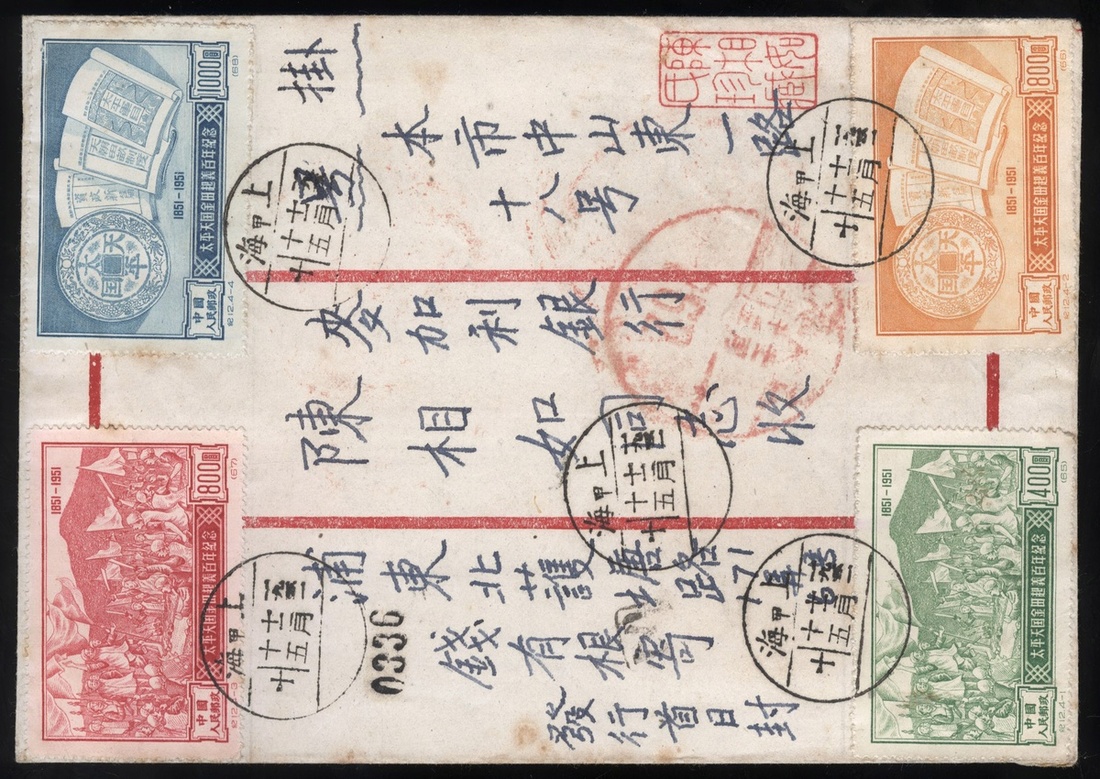 掛号
本市中山東一路
十八号
麥加利銀行
陳相如同志收
浦東北護塘路71
錢有根寄
發行首日封
0336
1000圓
(68)
太平天国金田起義百年紀念
1851-1951
太平天国
中國
人民郵政
紀12.4-4
800圓
(66)
太平天国金田起義百年紀念
1851-1951
太平天国
中國
人民郵政
紀12.4-2
800圓
(67)
太平天国金田起義百年紀念
1851-1951
中國
人民郵政
紀12.4-3
400圓
(65)
太平天国金田起義百年紀念
1851-1951
中國
人民郵政
紀12.4-1
上海
甲
上海
甲
上海
甲
上海
甲
上海
甲